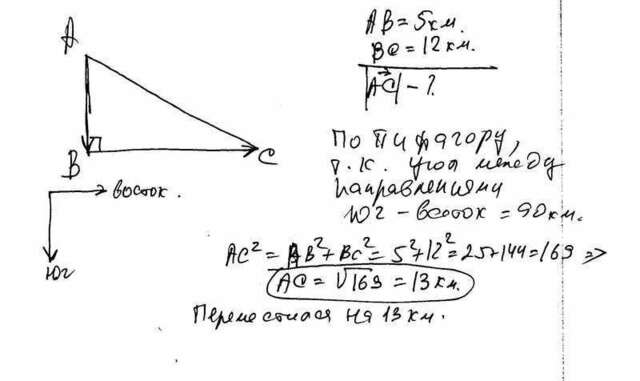 A
B
C
восток.
юг
AB = 5км.
BC = 12км.
|AC| - ?
По Пифагору,
т.к. угол между
направлениями
юг - восток = 90км.
AC² = AB² + BC² = 5² + 12² = 25 + 144 = 169 ⇒
AC = √169 = 13 км.
Переместился на 13 км.